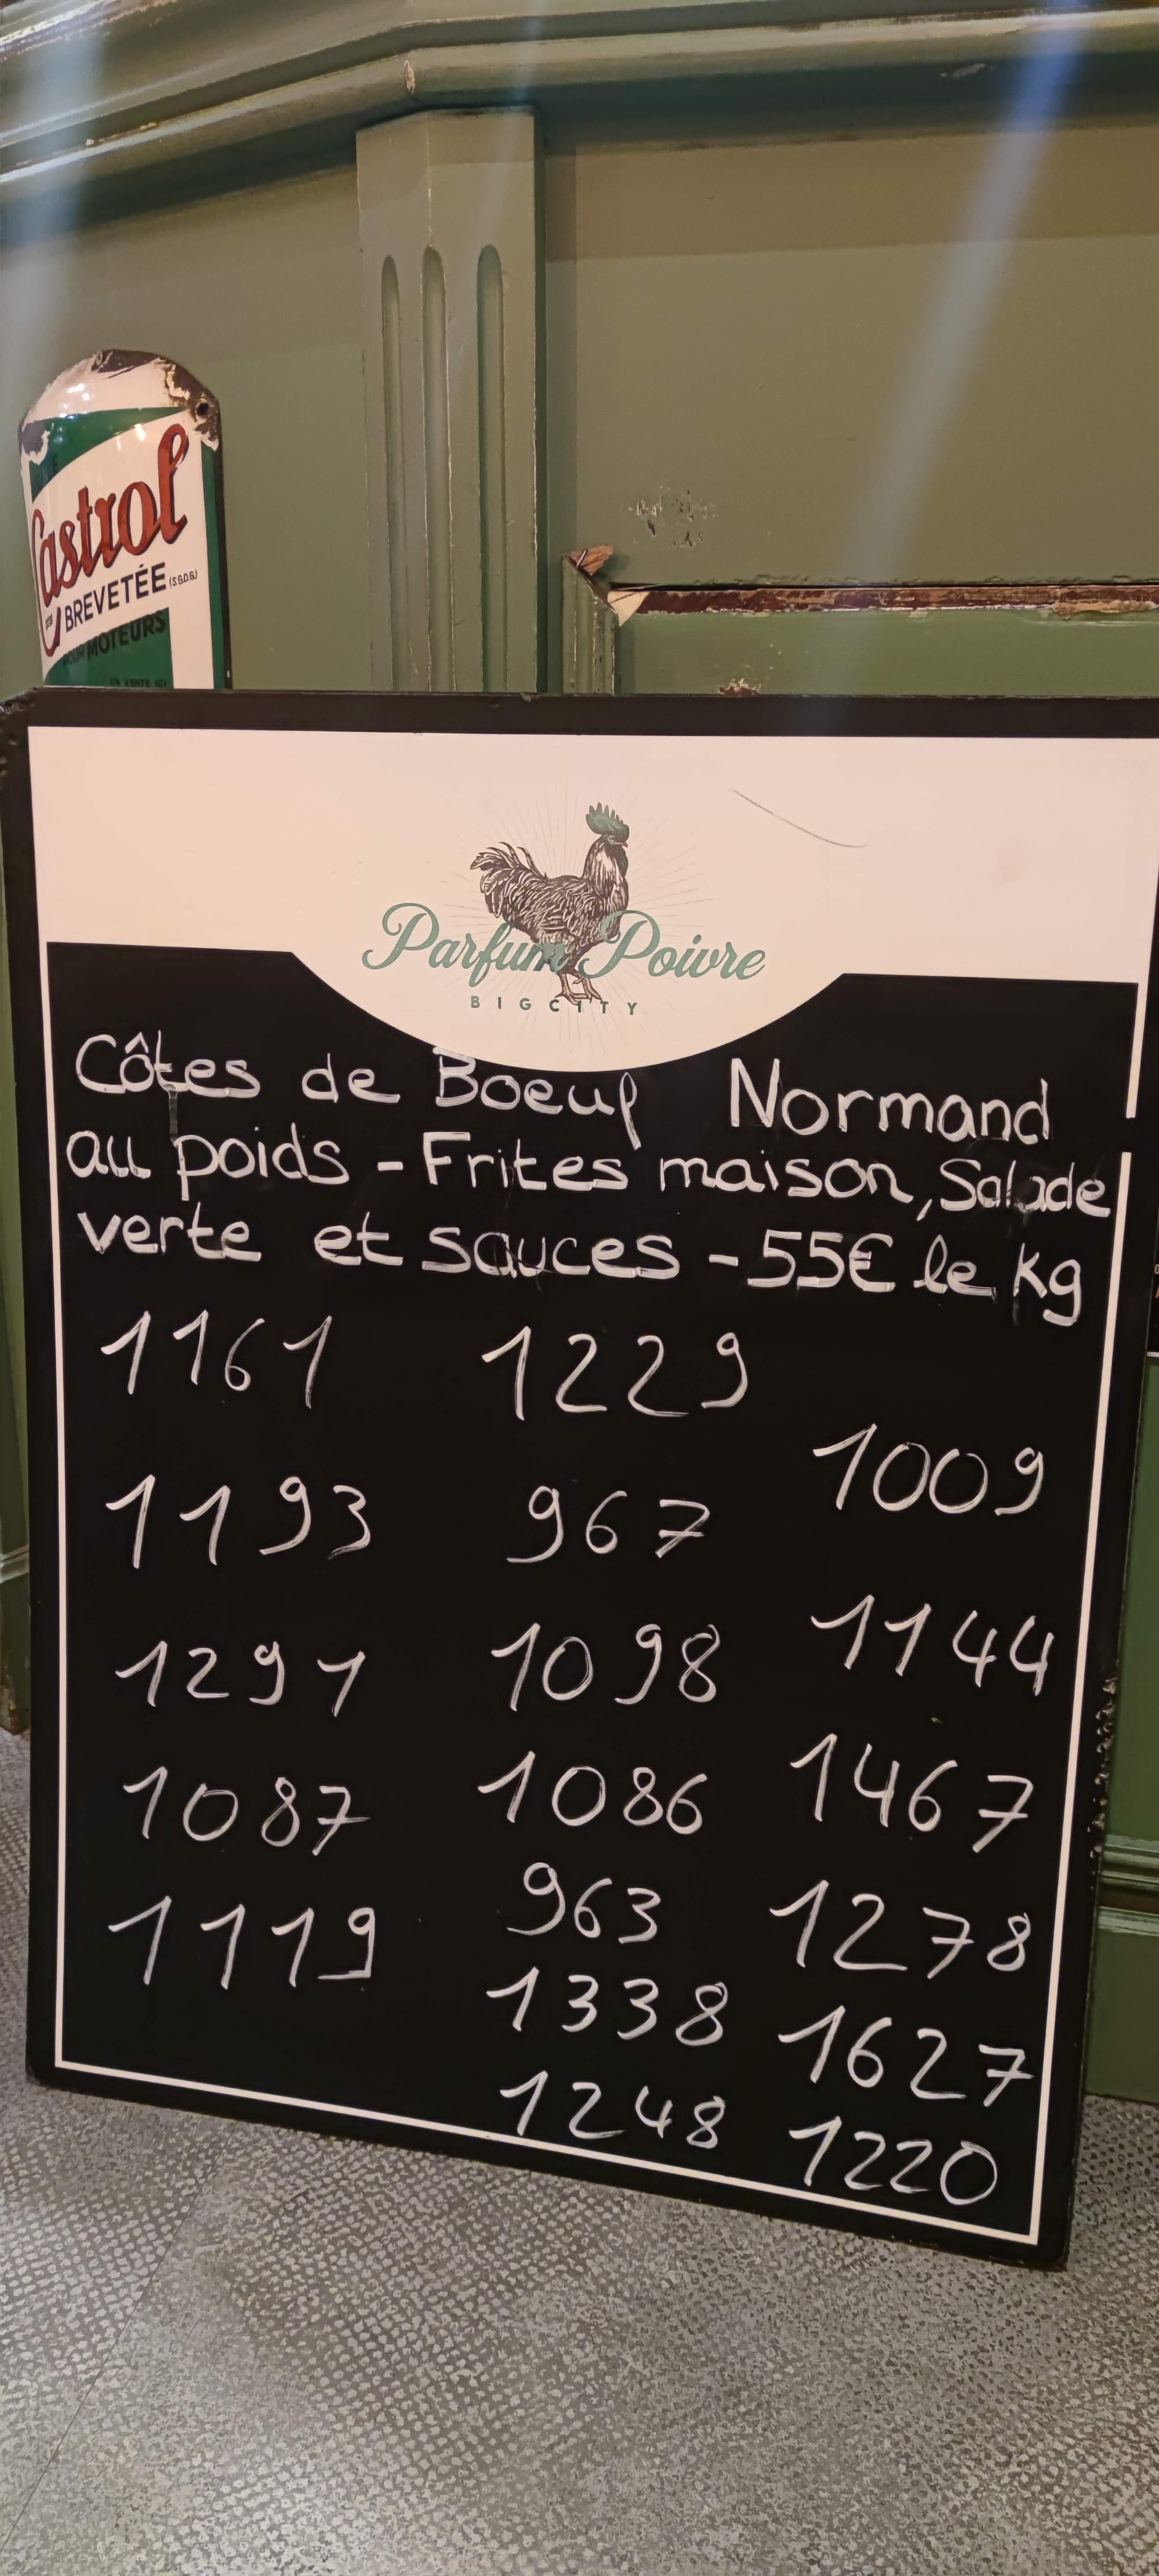 Castrol
BREVETÉE (S.G.D.G.)
POUR MOTEURS
EN VENTE ICI
Parfum Poivre
BIGCITY
Côtes de Boeuf Normand
au poids - Frites maison, Salade
verte et sauces - 55€ le kg
1161 1229
1009
1193 967
1144
1291 1098
1467
1087 1086
963 1278
1119
1338 1627
1248 1220